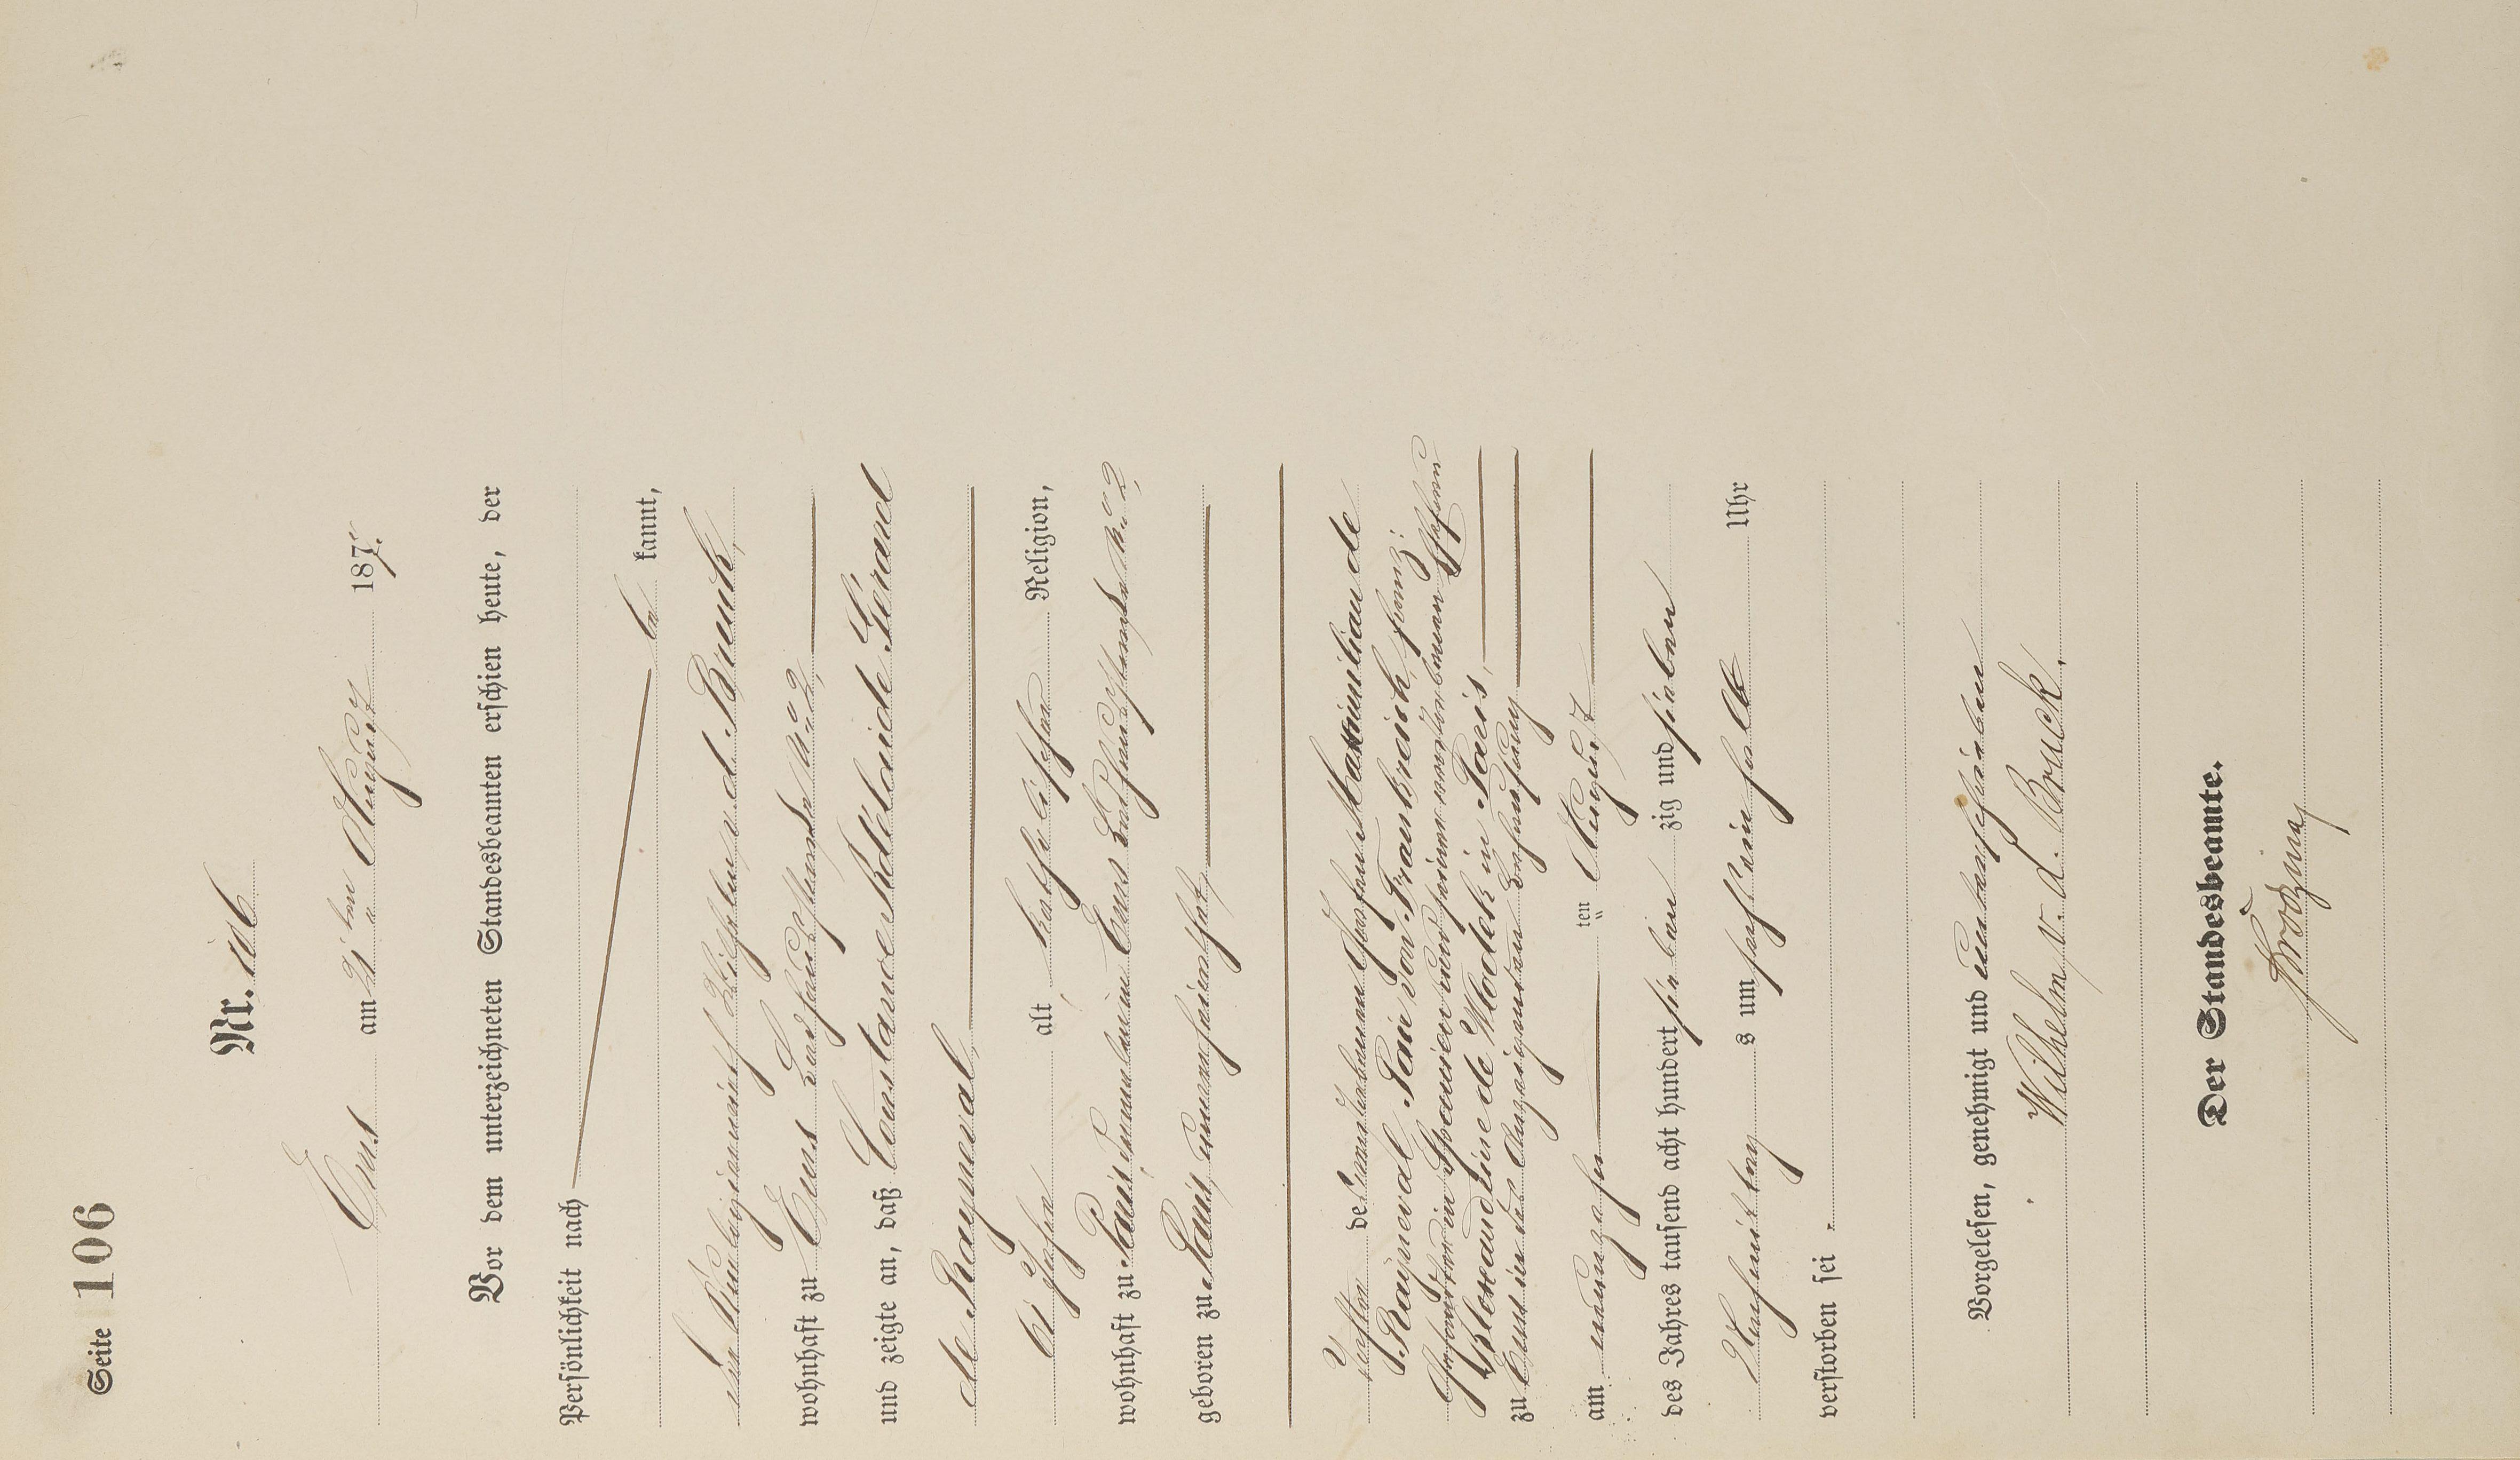 Seite 106
Nr. 106
Ems am 21ten August 1877.
Vor dem unterzeichneten Standesbeamten erschien heute, der
Persönlichkeit nach
be kannt,
der Wilhelm v. d. Bruck,
wohnhaft zu Ems Nr. 2,
und zeigte an, daß Constance Adélaide Gérard
de Rayneval,
61 Jahre alt, katholischer Religion,
wohnhaft zu Paris, Ems Nr. 2,
geboren zu Paris, unverheirathet,
Tochter des verstorbenen Grafen Maximilian de
Rayneval, Pair von Frankreich, franz:
Gesandter in Spanien und seiner verstorbenen Ehefrau
de Wlodek in Paris,
zu Ems in der Wohnung
am neunzehn ten August
des Jahres tausend acht hundert sieben zig und sieben
Nachmittags um sechs ein halb Uhr
verstorben sei.
Vorgelesen, genehmigt und unterschrieben
Wilhelm v. d. Bruck.
Der Standesbeamte.